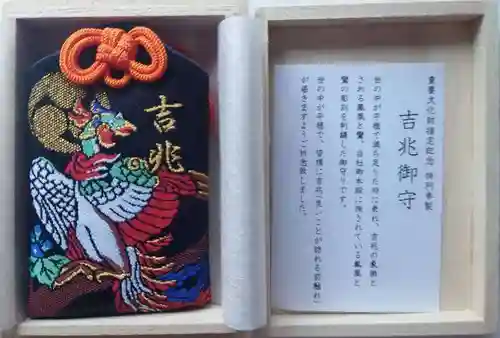 吉兆
重要文化財指定記念 特別奉製
吉兆御守
世の中が平穏で満ち足りた時に現れ、吉兆の象徴と
される鳳凰と鸞。当社御本殿に施されている鳳凰と
鸞の彫刻を刺繍した御守りです。
世の中が平穏で、皆様に吉兆「良いことが訪れる前触れ」
が届きますようご祈念致しました。